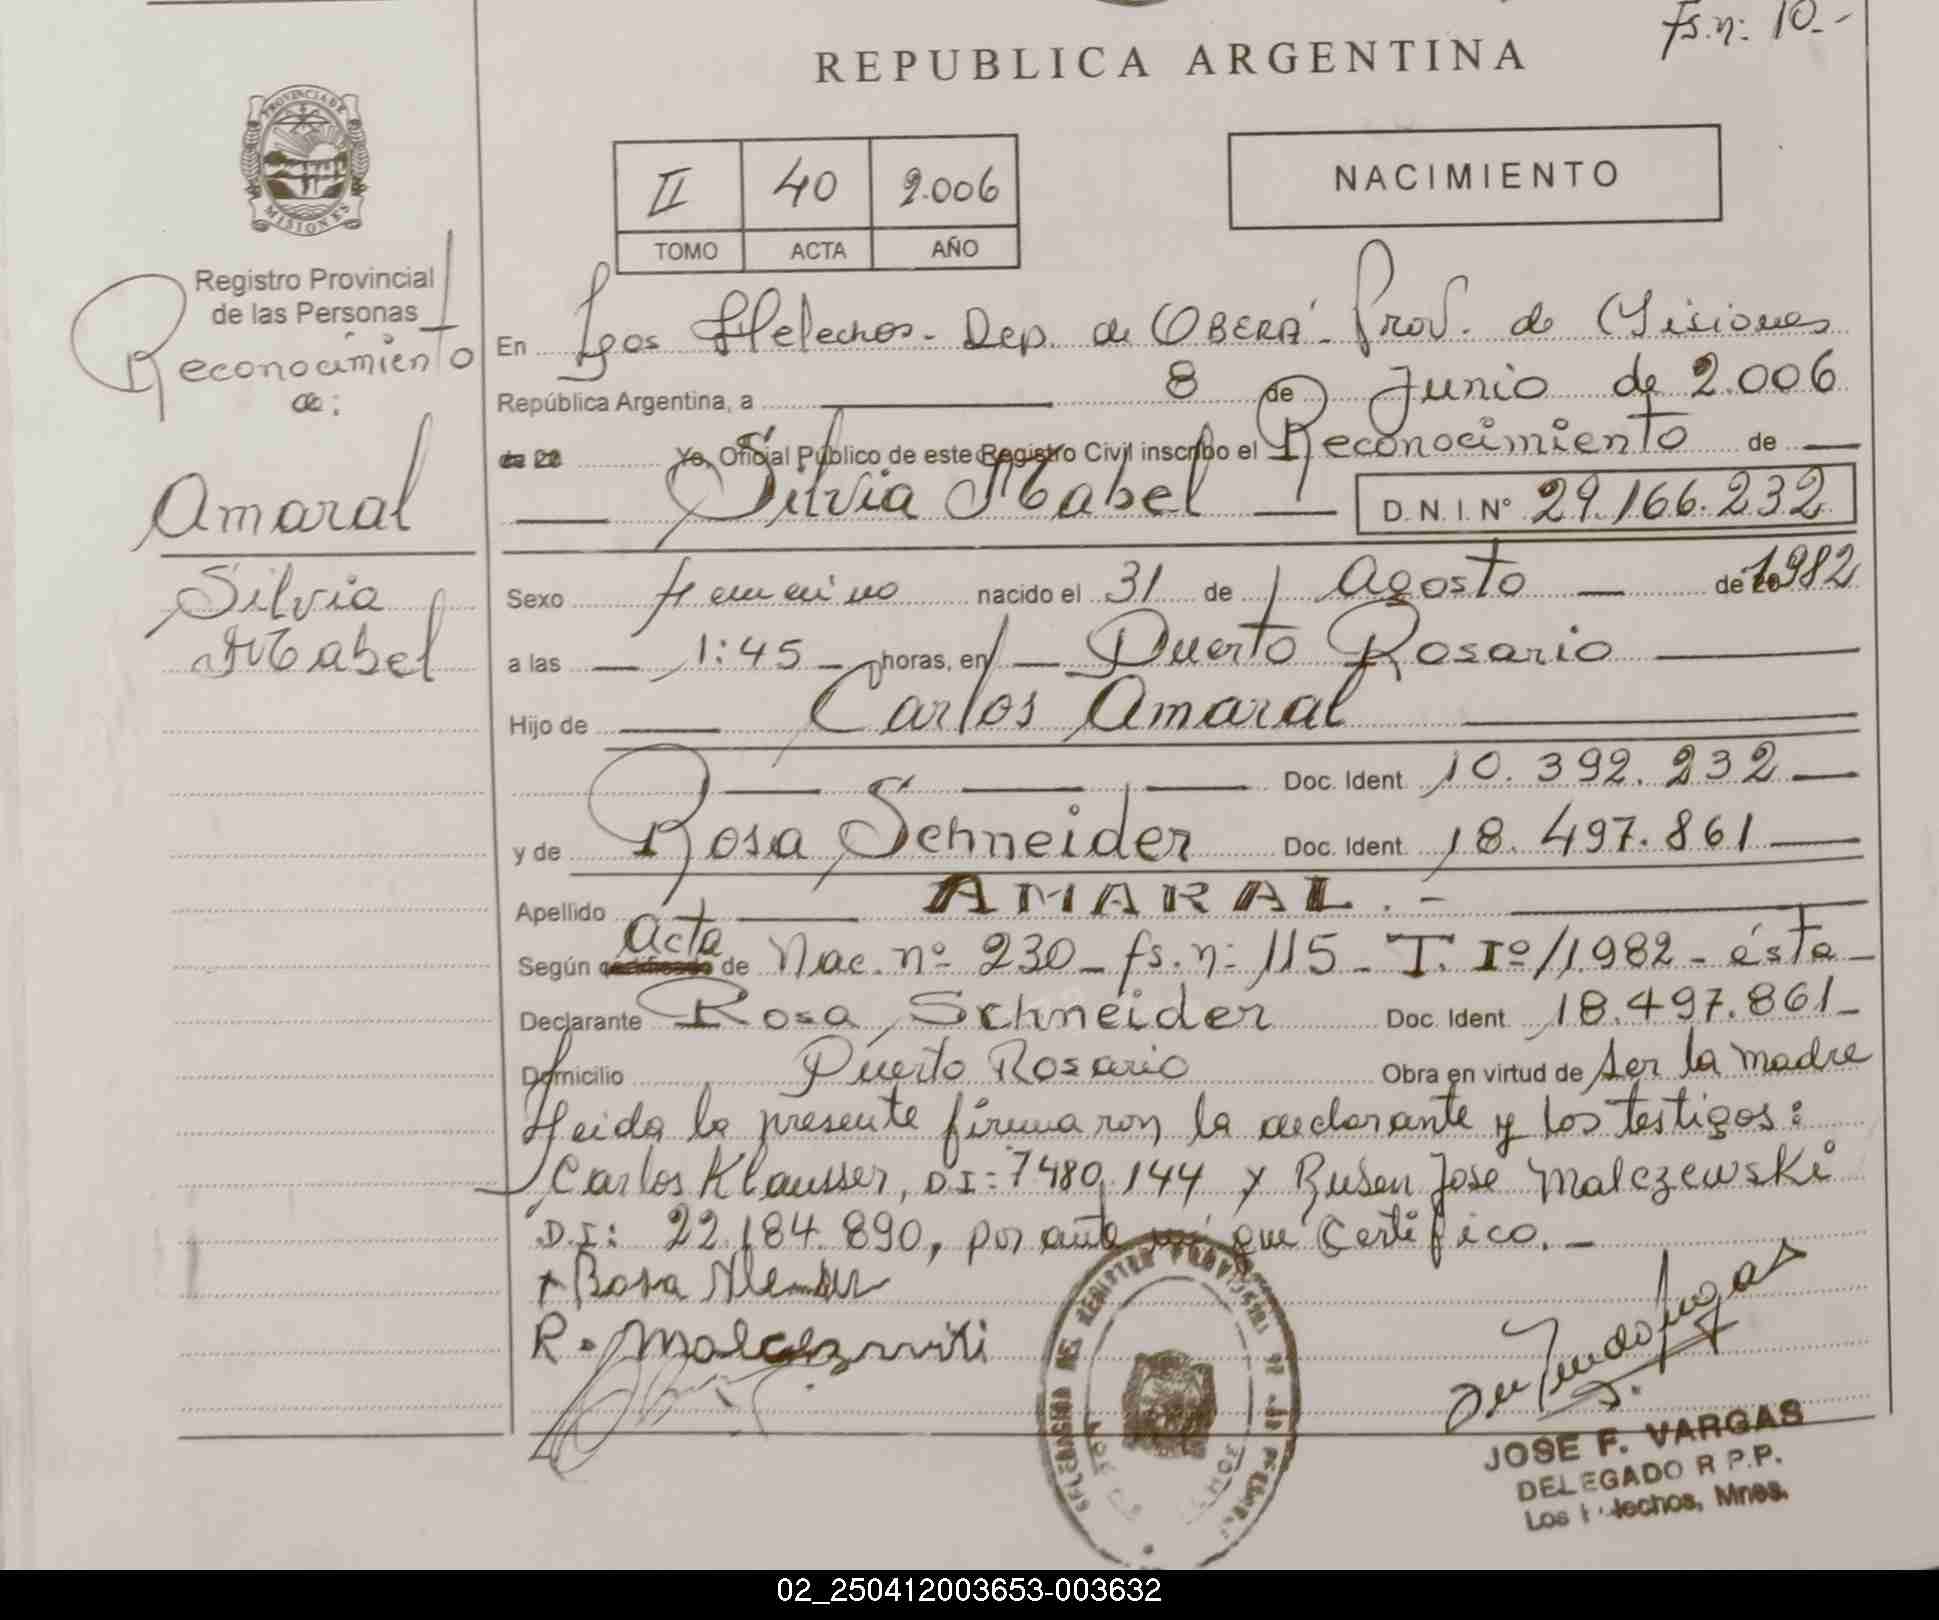 Fs.n: 10.-
REPUBLICA ARGENTINA
PROVINCIA DE
MISIONES
II 40 2.006
TOMO ACTA AÑO
NACIMIENTO
Registro Provincial
de las Personas
Reconocimiento
de:
Amaral
Silvia
Mabel
En Los Helechos - Dep. de OBERÁ - Prov. de Misiones
República Argentina, a 8 de Junio de 2.006
de 20 Yo, Oficial Público de este Registro Civil inscribo el Reconocimiento de
Silvia Mabel D.N.I. N° 29.166.232
Sexo Femenino nacido el 31 de Agosto de 1982
a las 1:45 horas, en Puerto Rosario
Hijo de Carlos Amaral
Doc. Ident. 10.392.232
y de Rosa Schneider Doc. Ident. 18.497.861
Apellido AMARAL.-
Según Acta de Nac. nº 230 - fs. n: 115 - T. Iº/1.982 - ésta -
Declarante Rosa Schneider Doc. Ident. 18.497.861 -
Domicilio Puerto Rosario Obra en virtud de ser la madre
Leida la presente firmaron la declarante y los testigos:
Carlos Klausser, DI: 7480.144 y Ruben Jose Malczewski
D.I: 22.184.890, por ante mí que Certifico. -
R. Malczewski
JOSE F. VARGAS
DELEGADO R.P.P.
Los Helechos, Mnes.
02_250412003653-003632